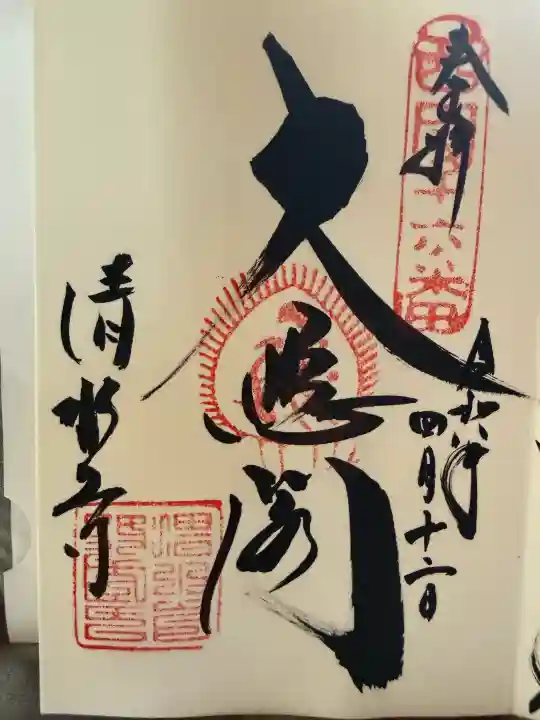 奉拝
西国十六番
令和六年
四月十二日
大悲閣
清水寺